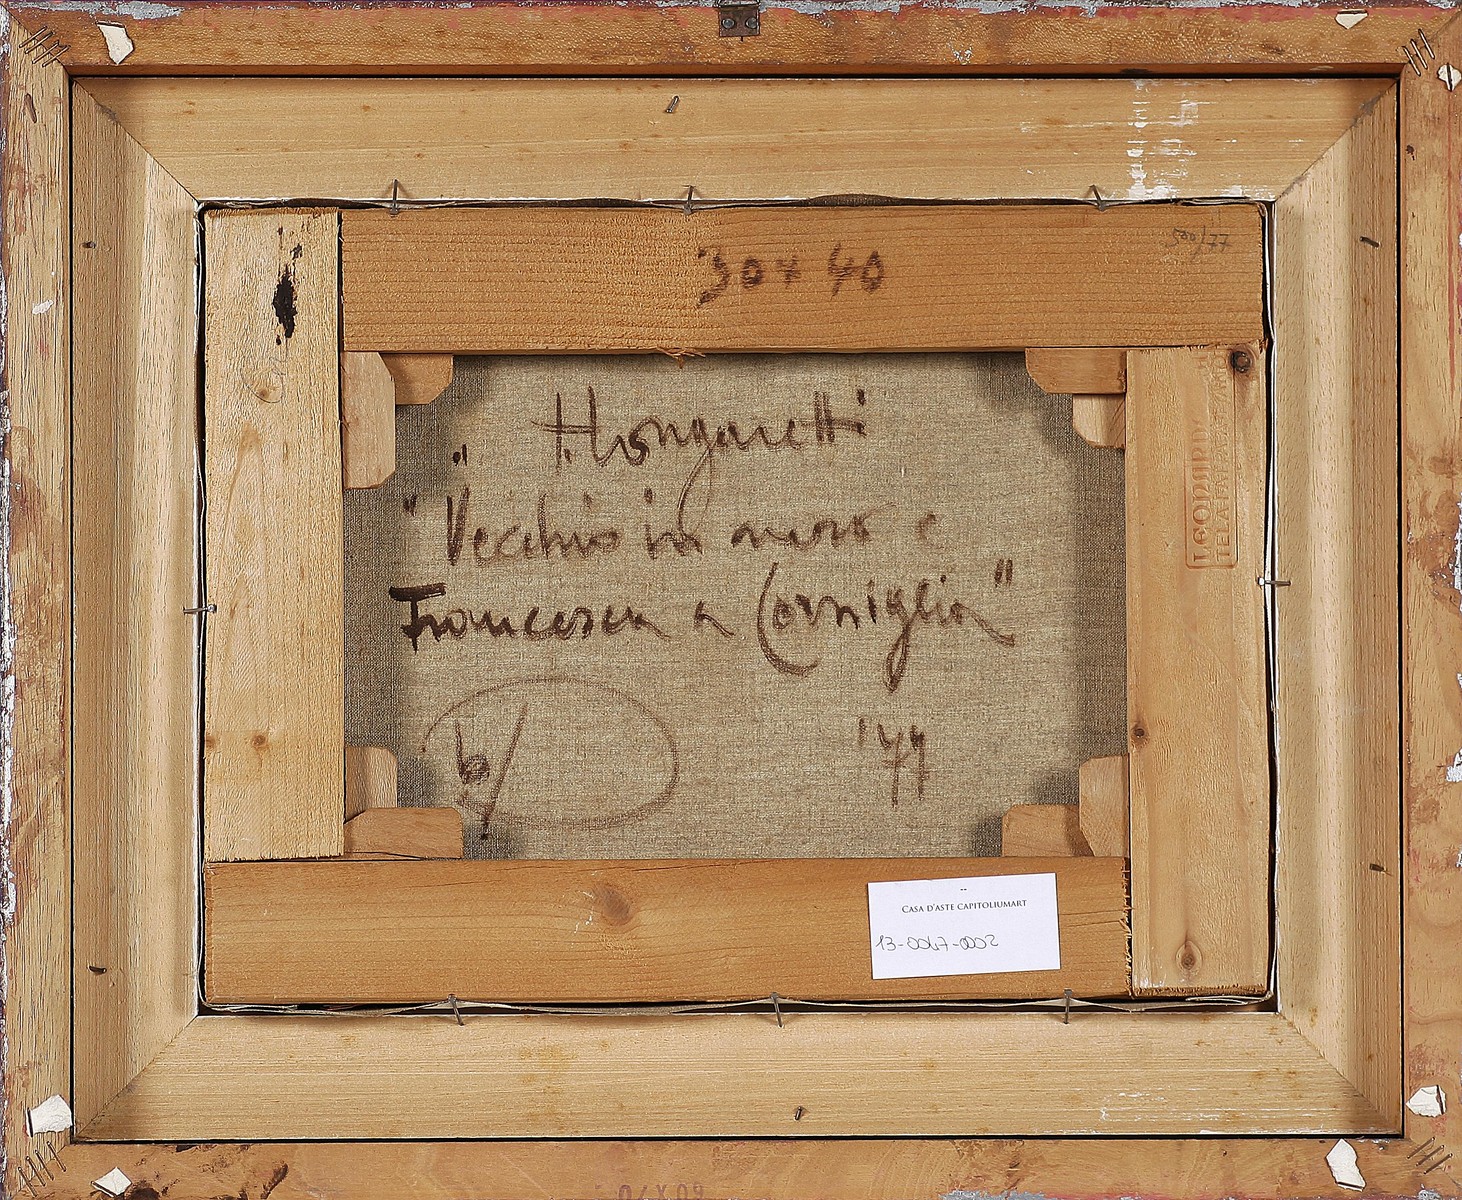 30 x 40
500/77
T. Longaretti
"Vecchio in nero e
Francesca a Corniglia"
'77
LEONARDI
CASA D'ASTE CAPITOLIUMART
13-0047-0002